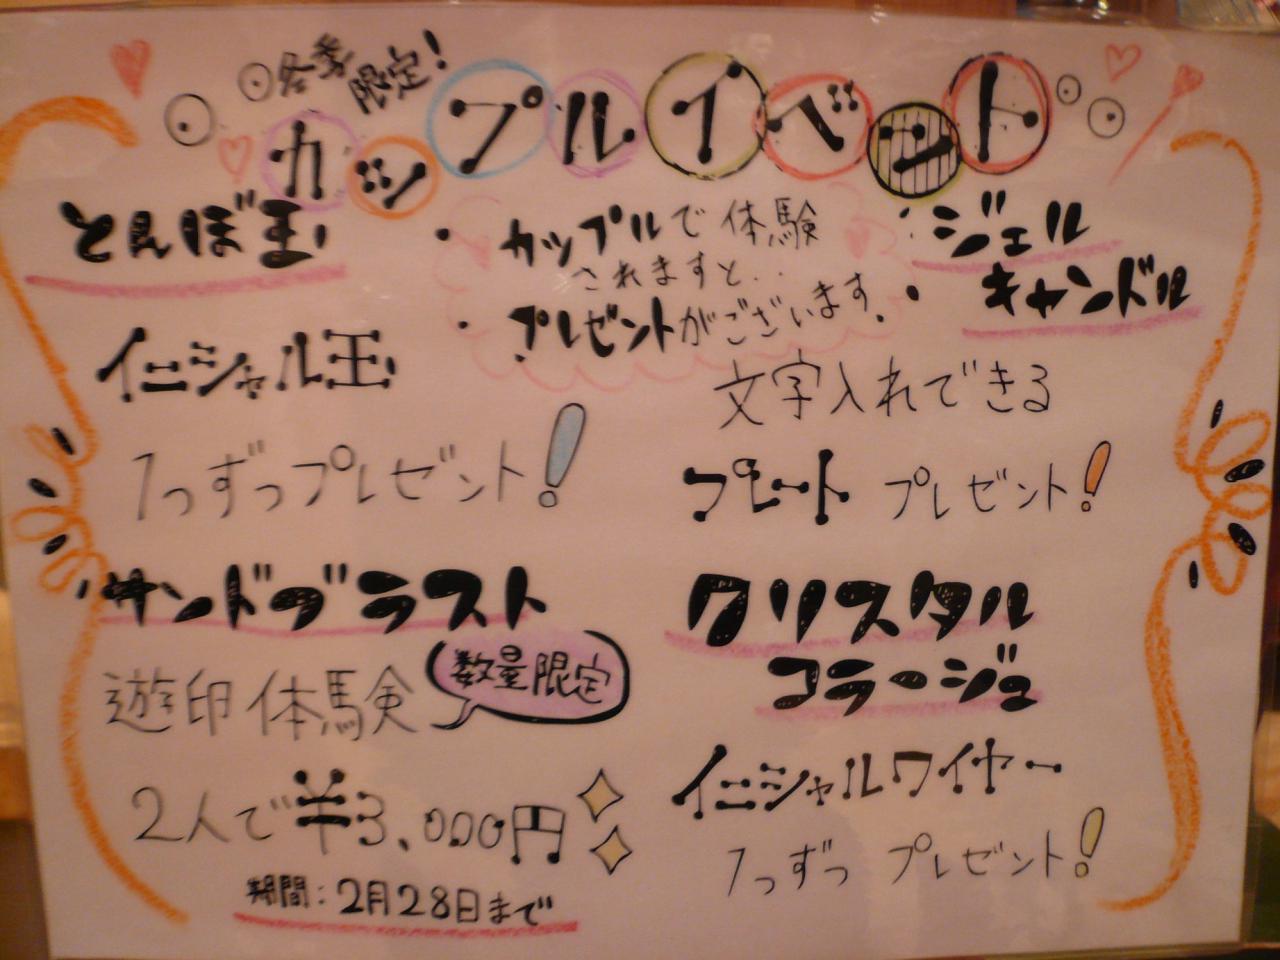 冬季限定!
カップルイベント
とんぼ玉
イニシャル玉
1つずつプレゼント!
・カップルで体験
されますと‥
・プレゼントがございます。
・ジェル
・キャンドル
文字入れできる
プレート プレゼント!
サンドブラスト
遊印体験
数量限定
2人で¥3,000円
期間:2月28日まで
クリスタル
コラージュ
イニシャルワイヤー
1つずつ プレゼント!